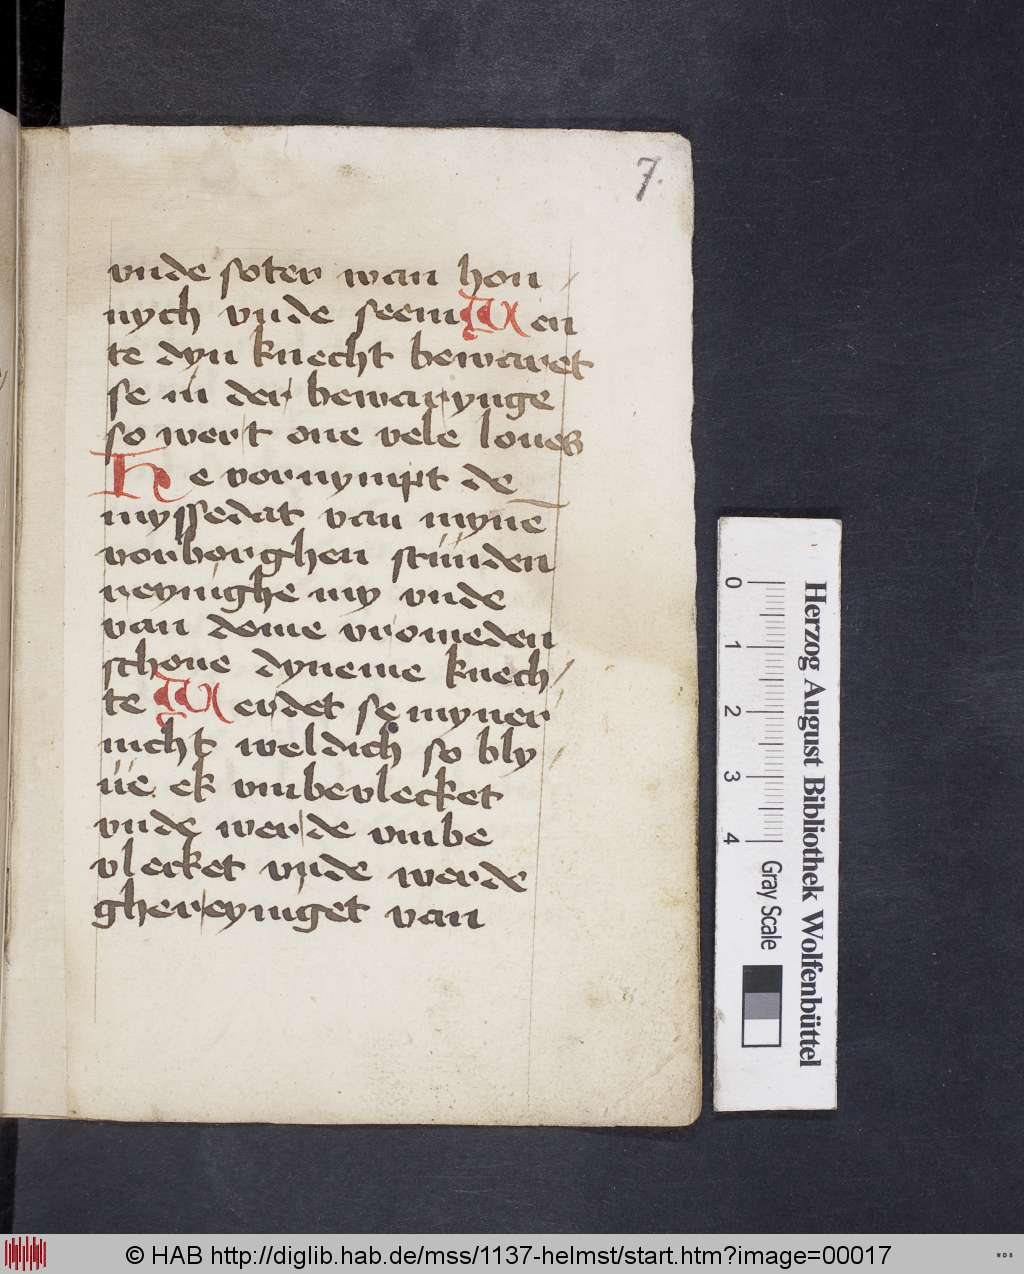 7.
vnde soter wan hon
nych vnde seem Wen
te dyn knecht bewaret
se in der bewarynge
so wert one vele loues
He vornympt de
myssedat van mynē
vorborghen stunden
reynighe my vnde
van deme vromeden
schone dyneme knech
te Werdet se myner
nicht weldich so bly
ue ek vmbevlecket
vnde werde vmbe
vlecket vnde werde
ghereyniget van
Herzog August Bibliothek Wolfenbüttel
0 1 2 3 4
Gray Scale
© HAB http://diglib.hab.de/mss/1137-helmst/start.htm?image=00017